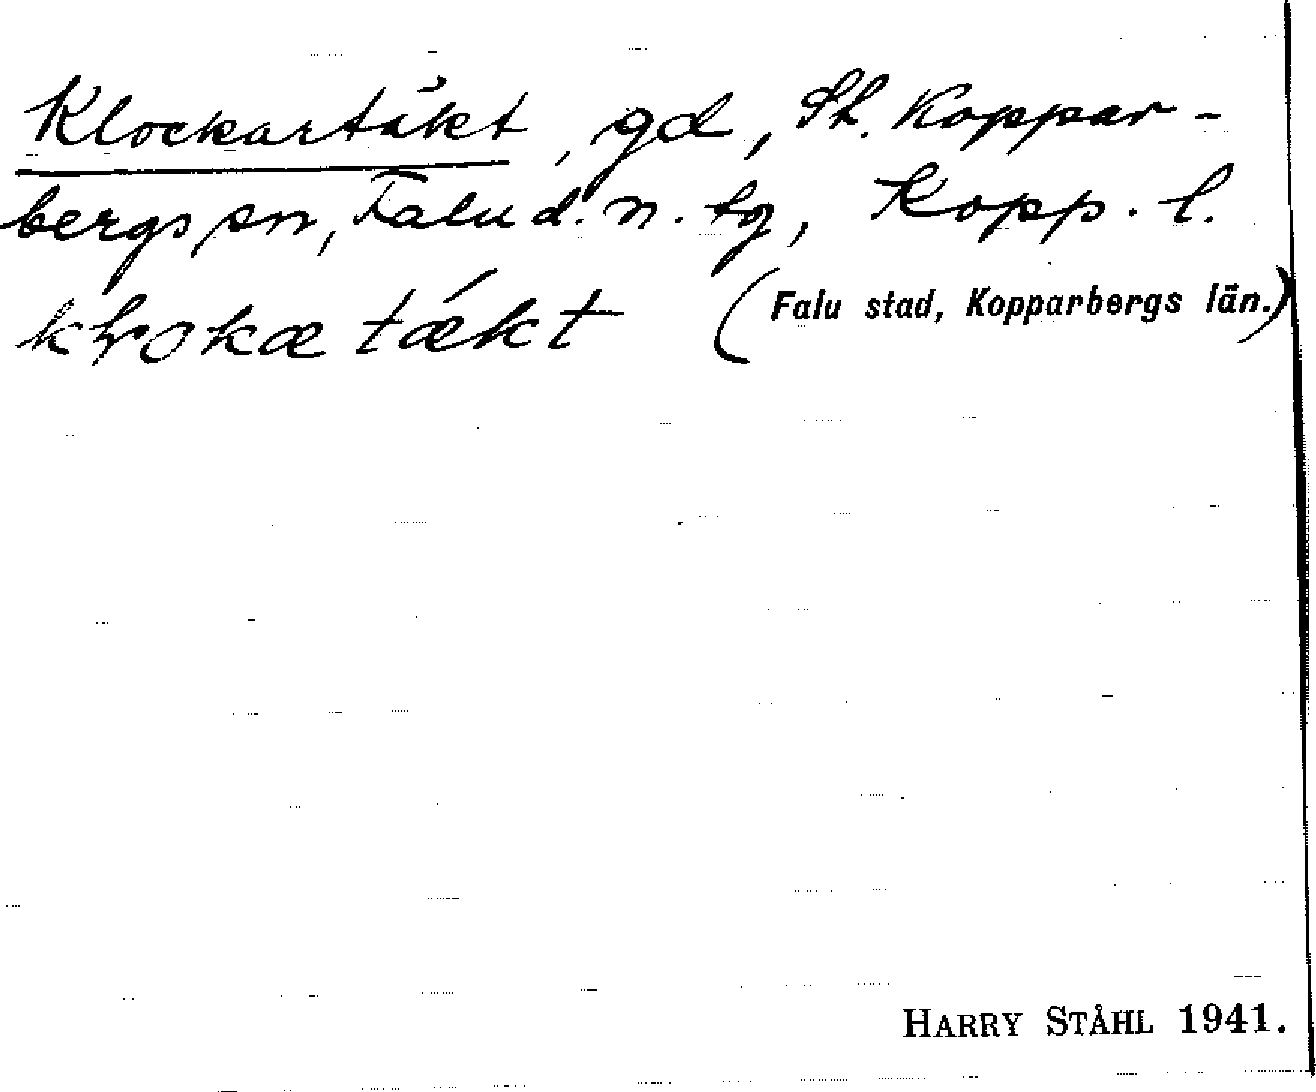 Klockartäkt, gd, St. Koppar-
bergs sn, Falu d. n. tg, Kopp. l.
tǽkt (Falu stad, Kopparbergs län.)
HARRY STÅHL 1941.